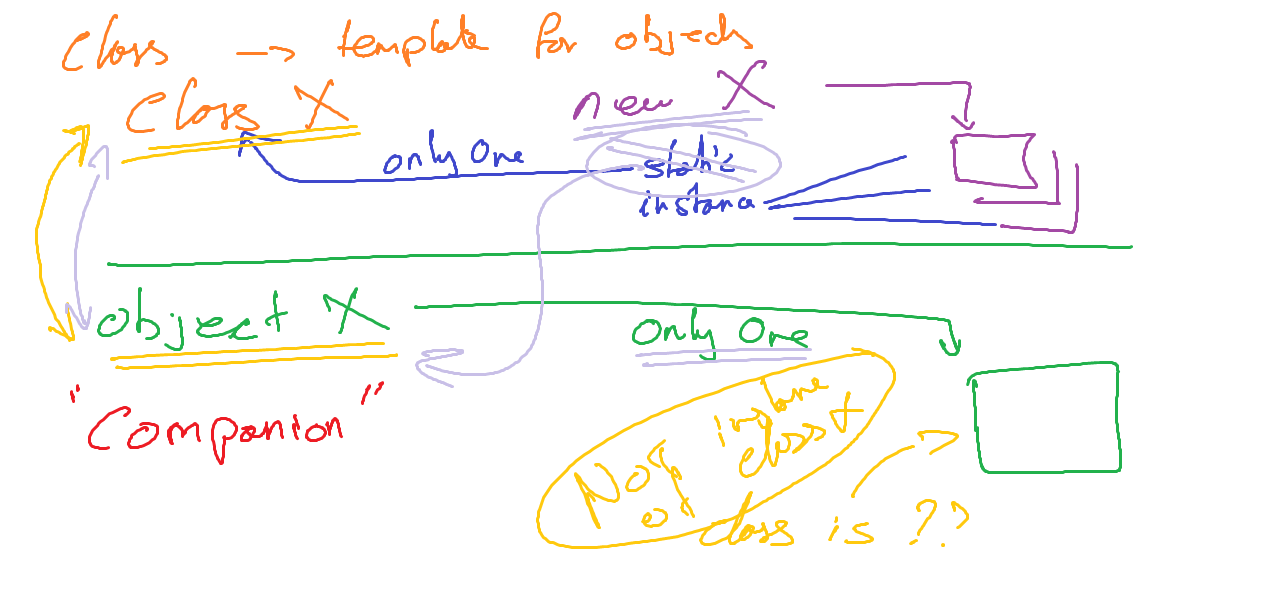 Class → template for objects
Class X
new X
only One
static
instance
object X
Only One
"Companion"
Not instance
of class X
class is ??